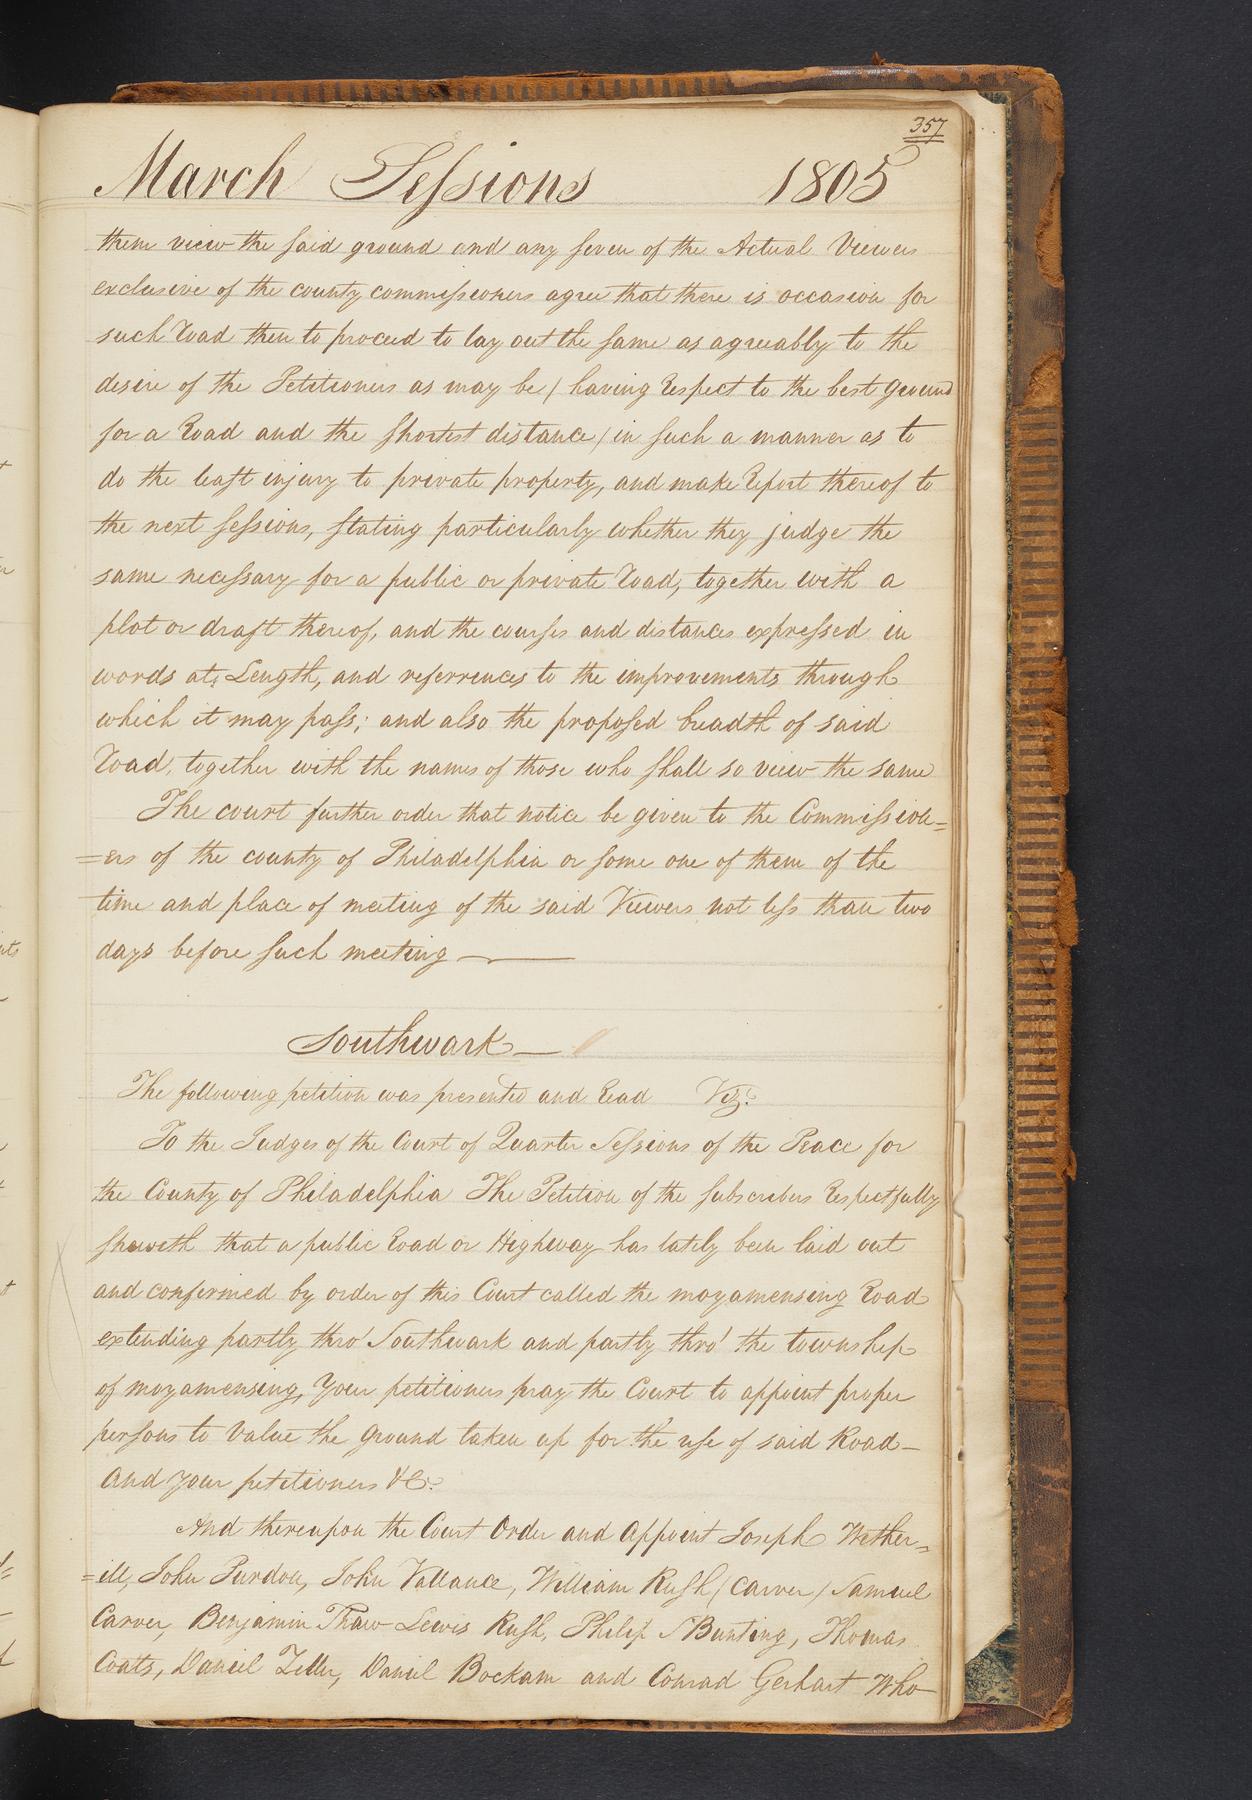 357
March Sessions 1805
them view the said ground and any seven of the Actual Viewers
exclusive of the county commissioners agree that there is occasion for
such Road then to proceed to lay out the same as agreeably to the
desire of the Petitioners as may be ( having Respect to the best ground
for a Road and the shortest distance ) in such a manner as to
do the least injury to private property, and make Report thereof to
the next sessions, stating particularly whether they judge the
same necessary for a public or private Road, together with a
plot or draft thereof, and the courses and distances expressed in
words at Length, and referrences to the improvements through
which it may pass; and also the proposed breadth of said
Road, together with the names of those who shall so view the same
The court further order that notice be given to the Commission=
=ers of the county of Philadelphia or some one of them of the
time and place of meeting of the said Viewers not less than two
days before such meeting —
Southwark —
The following petition was presented and Read Viz:
To the Judges of the Court of Quarter Sessions of the Peace for
the County of Philadelphia The Petition of the subscribers Respectfully
sheweth that a public Road or Highway has lately been laid out
and confirmed by order of this Court called the moyamensing Road
extending partly thro' Southwark and partly thro' the township
of moyamensing, Your petitioners pray the Court to appoint proper
persons to Value the ground taken up for the use of said Road —
And your petitioners &c.
And thereupon the Court Order and Appoint Joseph Wether=
=ill, John Purdon, John Vallance, William Rush ( Carver ) Samuel
Carver, Benjamin Thaw Lewis Rush, Philip S Bunting, Thomas
Coats, Daniel Zeller, Daniel Bockam and Conrad Gerhart Who